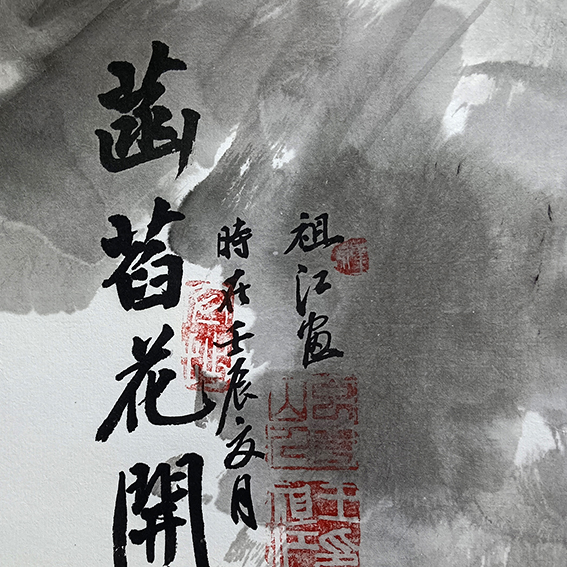 菡萏花開
時在壬辰夏月
祖江畫